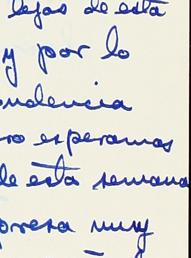 lejos de esta
y por lo
ndencia
ro esperamos
de esta semana
muy